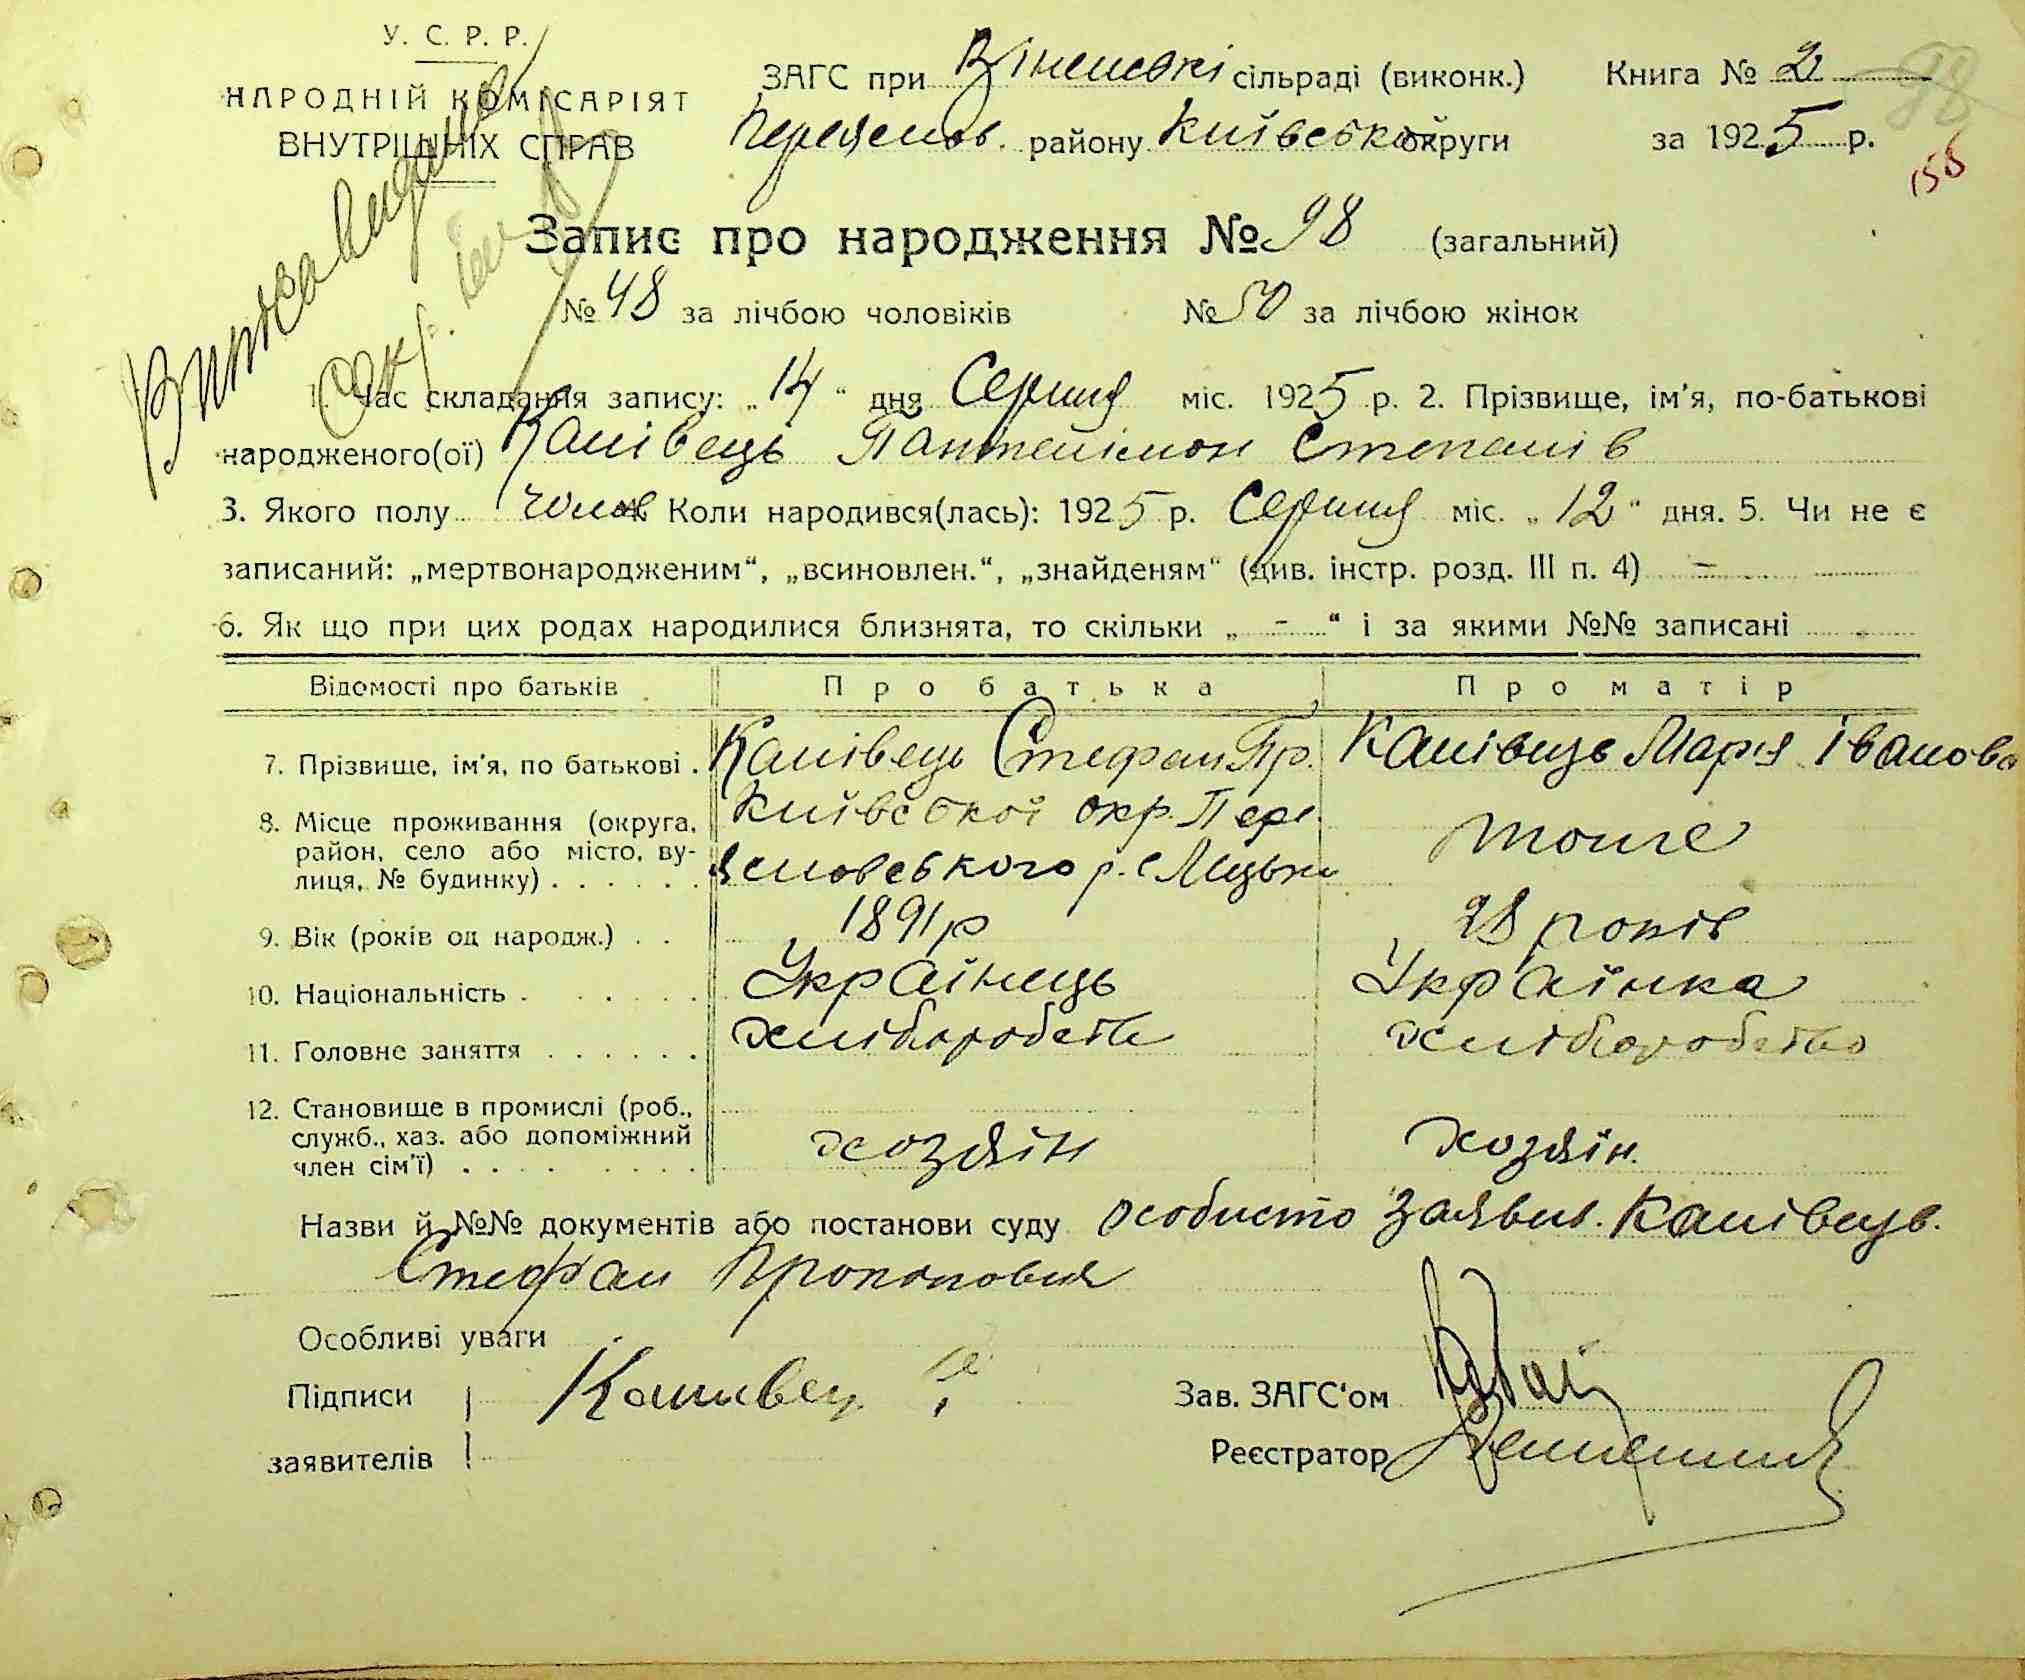 У. С. Р. Р.
НАРОДНІЙ КОМІСАРІЯТ
ВНУТРІШНІХ СПРАВ
ЗАГС при Віненські сільраді (виконк.) Книга № 2 98
Переяслов. району Київської округи за 1925 р.
158
Виписка видана
Запис про народження № 98 (загальний)
№ 48 за лічбою чоловіків № 50 за лічбою жінок
1. Час складання запису: „14“ дня Серпня міс. 1925 р. 2. Прізвище, ім'я, по-батькові
народженого(ої) Канівець Пантелімон Степанів
3. Якого полу чолов. 4. Коли народився(лась): 1925 р. Серпня міс. „12“ дня. 5. Чи не є
записаний: „мертвонародженим“, „всиновлен.“, „знайденям“ (див. інстр. розд. III п. 4) –
6. Як що при цих родах народилися близнята, то скільки „ - “ і за якими №№ записані
Відомості про батьків Про батька Про матір
7. Прізвище, ім'я, по батькові . Канівець Стефан Пр. Канівець Марія Іванова
8. Місце проживання (округа, район, село або місто, вулиця, № будинку) . . . . . . Київської окр. Пере
ясловського р. с. тоже
9. Вік (років од народж.) . . 1891 р 28 років
10. Національність . . . . . . Українець Українка
11. Головне заняття . . . . . . хліборобств хліборобство
12. Становище в промислі (роб., служб., хаз. або допоміжний член сім'ї) . . . . . . . . хозяїн хозяїн.
Назви й №№ документів або постанови суду особисто заявив. Канівець.
Стефан Прокопович
Особливі уваги
Підписи Канивец С Зав. ЗАГС'ом
заявителів Реєстратор